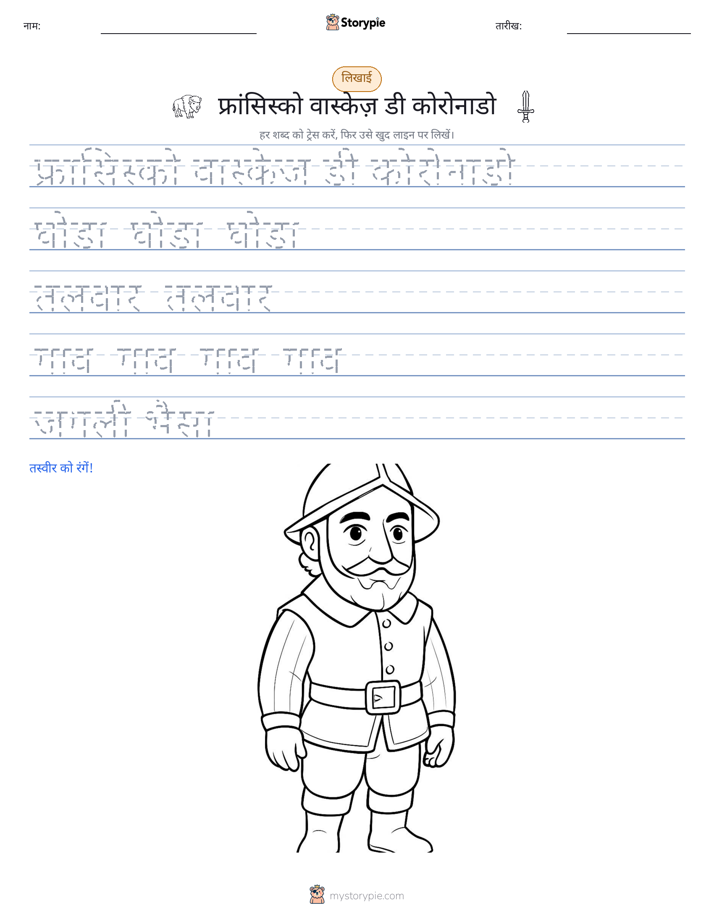 नाम:
Storypie
तारीख:
लिखाई
फ्रांसिस्को वास्केज़ डी कोरोनाडो
हर शब्द को ट्रेस करें, फिर उसे खुद लाइन पर लिखें।
फ्रांसिस्को वास्केज डी कोरोनाडो
घोडा घोडा घोडा
तलवार तलवार
गाव गाव गाव गाव
जगली भैंसा
तस्वीर को रंगें!
mystorypie.com